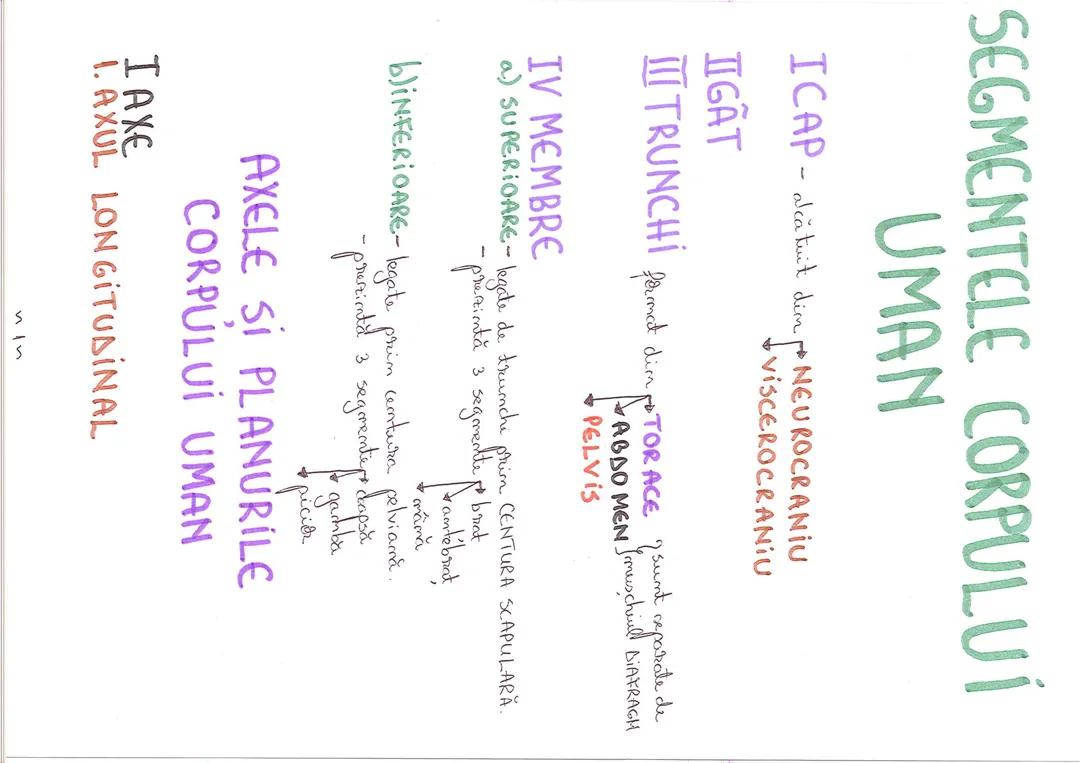 SEGMENTELE CORPULUI
UMAN
I CAP - alcătuit din NEUROCRANIU
VISCEROCRANIU
II GÂT
III TRUNCHI format din TORACE } sunt separate de
ABDOMEN } mușchiul DIAFRAGM
PELVIS
IV MEMBRE
a) SUPERIOARE - legate de trunchi prin CENTURA SCAPULARĂ.
- prezintă 3 segmente braț
antebraț
mână
b) INFERIOARE - legate prin centura pelviană.
- prezintă 3 segmente coapsă
gambă
picior
AXELE SI PLANURILE
CORPULUI UMAN
I AXE
1. AXUL LONGITUDINAL